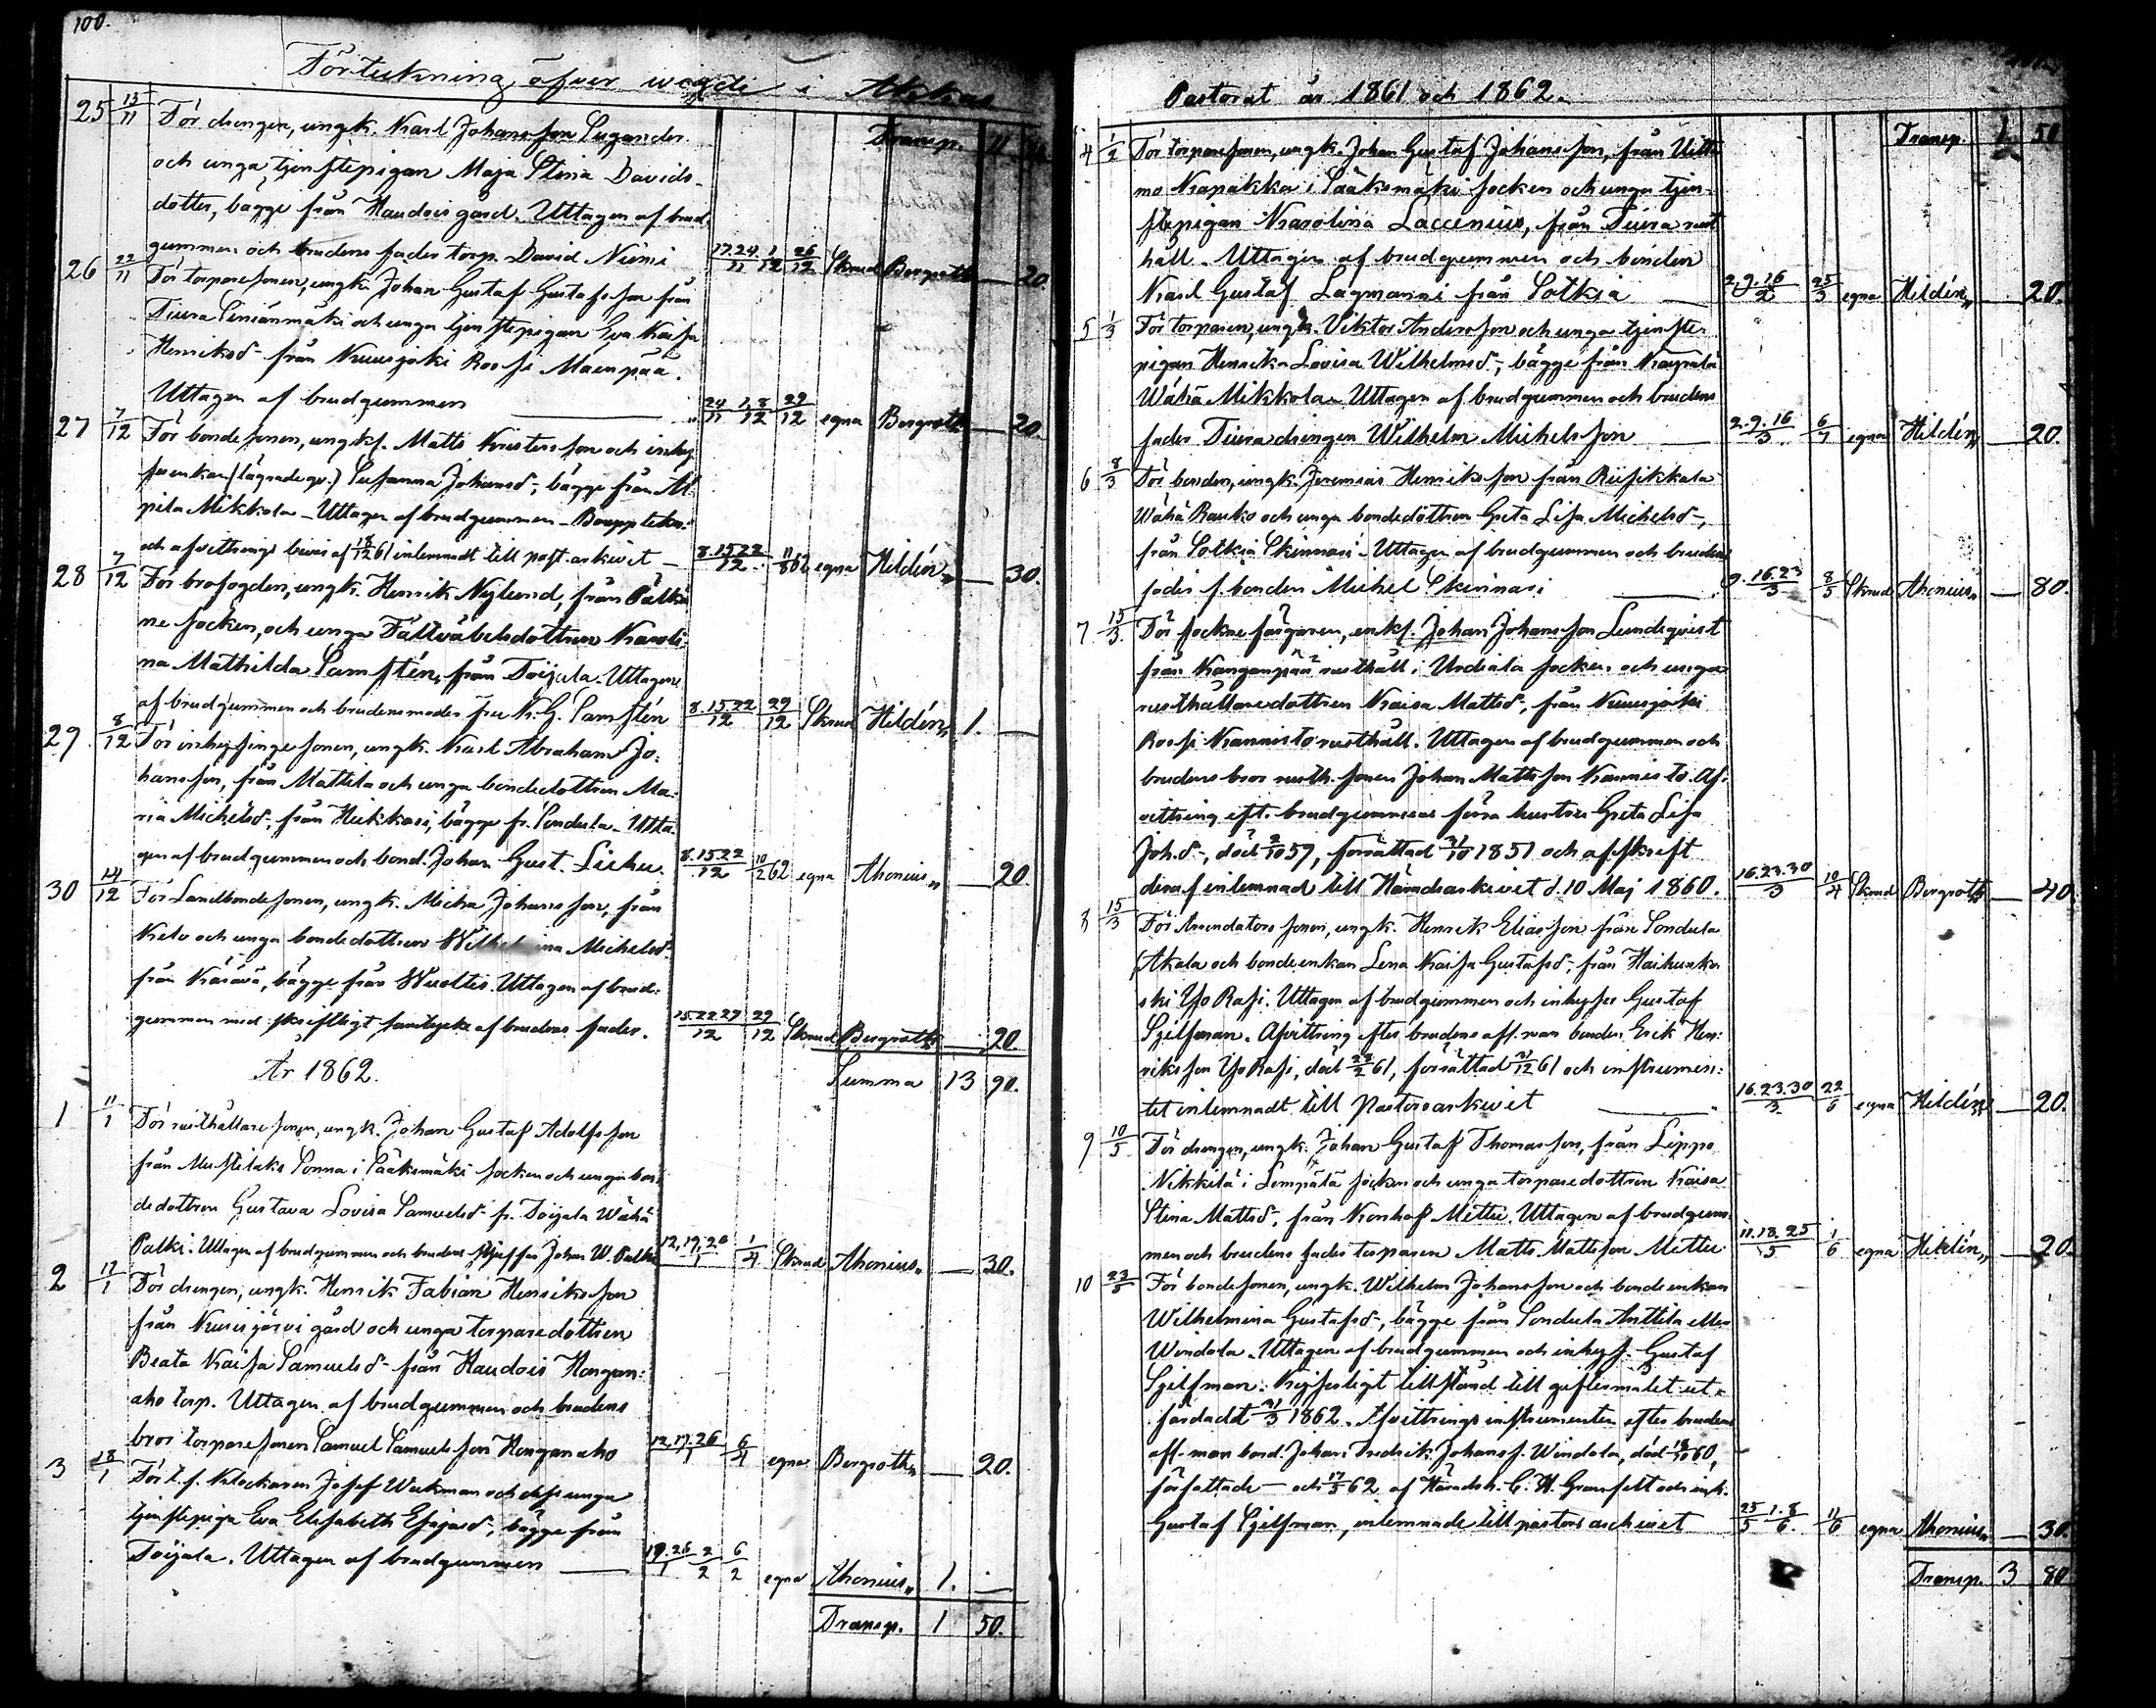 100.
Förteckning öfver wigde i Akkas
25 13/11 För drengen, ungk. Karl Johansson Lugander Transp. 11
och unga tjenstepigan Maja Stina Davids-
dotter, bägge från Haudois gård. Uttagen af brud,
gummen och brudens fader torp. David Niemi 17.24/11 1/12 26/12 Skrud Bergroth — 20.
26 22/11 För torparesonen, ungk. Johan Gustaf Gustafsson från
Tiura och unga tjenstepigan Eva Kaisa
Henriksd- från Kuurijoki Rossi Maenpää.
Uttagen af brudgummen 24/11 1.8/12 29/12 egna Bergroth — 20.
27 7/12 För bondesonen, ungkf. Matts Kristersson och inhy
senkan (lägradeqv.) Susanna Johansd-, bägge från
pila Mikkola - Uttagen af brudgummen - Boupptekn:
och afvittrings bevis af 18/12 61 inlemnadt till past. arkivet — 8.15.22/12 11/8 62 egna Hildén „ — 30.
28 7/12 För brofogden, ungk. Henrik Nylund, från Pälkä
ne socken, och unga Fältväbelsdottren Karoli-
na Mathilda Samstén, från Toijala. Uttagen
af brudgummen och brudens moder fru K. G. Samstén 8.15.22/12 29/12 Skrud Hildén „ 1. —
29. 8/12 För inhysingesonen, ungk. Karl Abraham Jo-
hansson, från Mattila och unga bondedottren Ma-
ria Michelsd-, från Heikkari, bägge fr. Sondula - Utta
gen af brudgummen och bond. Johan Gust. Lieku. 8.15.22/12 10/2 62 egna Ahonius „ — 20.
30 14/12 För Landbondesonen, ungk. Micka Johansson, från
Keto och unga bondedottren Wilhelmina Michelsd-
från Käsävä, bägge från Wuoltis. Uttagen af brud-
gummen med skriftligt samtycke af brudens fader. 15.22.29/12 29/12 Skrud Bergroth — 20.
År 1862. Summa 13 90.
1 11/1 För rusthållaresonen, ungk. Johan Gustaf Adolfsson
från Sonna i Sääksmäki socken och unga bon-
dedottren Gustava Lovisa Samuelsd- fr. Toijala Wähä
Palki. Uttagen af brudgummen och brudens styffar Johan W. Palki 12.19.26/1 1/4 Skrud Ahonius „ — 30.
2 12/1 För drengen, ungk. Henrik Fabian Henriksson
från Kurisjärvi gård och unga torparedottren
Beata Kaisa Samuelsd- från Haudois Hongan-
aho torp. Uttagen af brudgummen och brudens
bror torparesonen Samuel Samuelsson Honganaho 12.19.26/1 6/4 egna Bergroth „ — 20.
3 18/1 För t.f. Klockaren Josef Wickman och dess unga
tjenstepiga Eva Elisabeth Esajasd-, bägge från
Toijala. Uttagen af brudgummen — 19.26/1 2/2 6/2 egna Ahonius „ 1. —
Transp. 1 50.
Pastorat år 1861 och 1862.
4 1/2 För torparesonen, ungk. Johan Gustaf Johansson, från Uitta Transp. 1 50
mo Krapakko i Sääksmäki socken och unga tjen-
stepigan Karolina Laccenius, från Tiura rust
håll. Uttagen af brudgummen och bonden
Karl Gustaf Lagmanni från Sotkia — 2.9.16/2 25/3 egna Hildén „ — 20.
5 1/3 För torparen, ungk. Viktor Andersson och unga tjenste-
pigan Henrika Lovisa Wilhelmsd-, bägge från
Wähä Mikkola - Uttagen af brudgummen och brudens
fader Tiura drengen Wilhelm Michelsson — 2.9.16/3 6/4 egna Hildén „ — 20.
6 8/3 För bonden, ungk. Jeremias Henriksson från Riisikkala
Wähä Rauko och unga bondedottren Greta Lisa Michelsd-,
från Sotkia Skinnari - Uttagen af brudgummen och brudens
fader f. bonden Michel Skinnari — 9.16.23/3 8/5 Skrud Ahonius „ — 80.
7 15/3 För sockne färgaren, enkf. Johan Johansson Lundqvist
från Kanganpää rusthåll i Urdiala socken och unga
rusthållaredottren Kaisa Mattsd-, från Kuurijoki
Rossi Kannisto rusthåll. Uttagen af brudgummen och
brudens bror rusth. sonen Johan Mattsson Kannisto. Af-
vittring eft. brudgummens förra hustru Greta Lisa
Joh.d-, död 2/10 57, förrättad 21/10 1857 och afskrift
deraf inlemnad till Häradsarkivet d. 10 Maj 1860. 16.23.30/3 10/4 Skrud Bergroth — 40.
8 15/3 För Arrendators sonen, ungk. Henrik Eliasson från Sondula
Akala och bondeenkan Lena Kaisa Gustafsd-, från Haihunko
ski Ylo Rasi. Uttagen af brudgummen och inhyses Gustaf
Sjelfman. Afvittring efter brudens afl. man bonden Erik Hen-
riksson Ylo Rasi, död 22/2 61, förrättad 21/12 61 och instrumen-
tet inlemnadt till Pastorsarkivet — 16.23.30/3 22/6 egna Hildén „ — 20.
9 10/5 För drengen, ungk. Johan Gustaf Thomasson, från Lippo
Nikkilä i Lempälä socken och unga torparedottren Kaisa
Stina Mattsd-, från Konhof Mettu. Uttagen af brudgum-
men och brudens fader torparen Matts Mattsson Mettu 11.18.25/5 1/6 egna Hildén „ — 20.
10 23/5 För bondesonen, ungk. Wilhelm Johansson och bondeenkan
Wilhelmina Gustafsd-, bägge från Sondula Anttila eller
Windala. Uttagen af brudgummen och inhys. Gustaf
Sjelfman. Kejserligt tillstånd till giftermålet ut-
färdadt 31/3 1862. Afvittrings instrumenten efter brudens
afl. man bond. Johan Fredrik Johanss. Windala, död 18/10 60,
författade — och 17/5 62 af Häradsh. C. H. Gransfelt och inh.
Gustaf Sjelfman, inlemnade till pastors archivet 25/5 1.8/6 11/6 egna Ahonius „ — 30.
Transp. 3 80